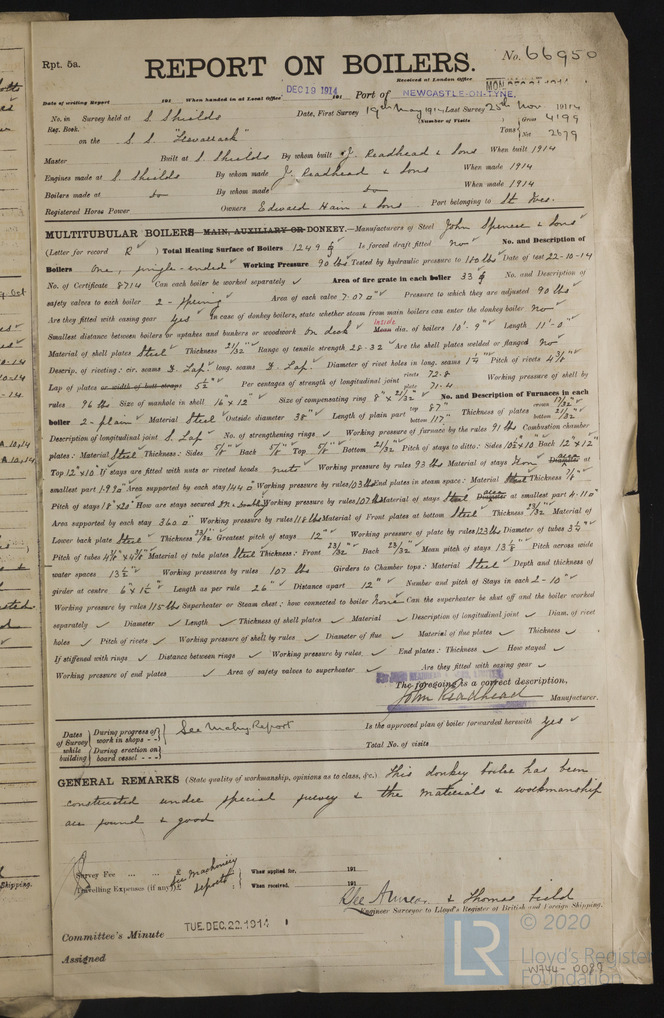 Rpt. 5a.
REPORT ON BOILERS.
No. 66950
Received at London Office
Date of writing Report 191 When handed in at Local Office DEC 19 1914 191 Port of NEWCASTLE-ON-TYNE.
No. in Survey held at S. Shields Date, First Survey 19th May 1914 Last Survey 25th Nov 1914
Reg. Book. Number of Visits Gross 4199
on the S.S. Tons Net 2679
Master Built at S. Shields By whom built J. Readhead & Sons When built 1914
Engines made at S. Shields By whom made J. Readhead & Sons When made 1914
Boilers made at do By whom made do When made 1914
Registered Horse Power Owners Edward Hain & Sons Port belonging to St Ives.
MULTITUBULAR BOILERS MAIN, AUXILIARY OR DONKEY.—Manufacturers of Steel John Spencer & Sons
(Letter for record R ) Total Heating Surface of Boilers 1249 Is forced draft fitted No No. and Description of
Boilers One, single-ended Working Pressure 90 lbs Tested by hydraulic pressure to 180 lbs Date of test 22-10-14
No. of Certificate 8714 Can each boiler be worked separately Area of fire grate in each boiler 33 No. and Description of
safety valves to each boiler 2 - spring Area of each valve 7.07 Pressure to which they are adjusted 90 lbs
Are they fitted with easing gear Yes In case of donkey boilers, state whether steam from main boilers can enter the donkey boiler No
Smallest distance between boilers or uptakes and bunkers or woodwork on deck Inside Mean dia. of boilers 10'. 9" Length 11'-0"
Material of shell plates Steel Thickness 21/32 Range of tensile strength 28-32 Are the shell plates welded or flanged No
Descrip. of riveting: cir. seams D. Lap. long. seams D. Lap. Diameter of rivet holes in long. seams 1 1/4 Pitch of rivets 4 3/8"
Lap of plates or width of butt straps 5 1/2" Per centages of strength of longitudinal joint rivets 72.8 plate 71.4 Working pressure of shell by
rules 96 lbs. Size of manhole in shell 16" x 12" Size of compensating ring 8" x 21/32 No. and Description of Furnaces in each
boiler 2 - plain Material Steel Outside diameter 38" Length of plain part top 87" bottom 117" Thickness of plates crown 17/32 bottom 21/32
Description of longitudinal joint S. Lap No. of strengthening rings Working pressure of furnace by the rules 91 lbs Combustion chamber
plates: Material Steel Thickness: Sides 5/8 Back 5/8 Top 5/8 Bottom 21/32 Pitch of stays to ditto: Sides 10 1/2 x 10 Back 12 x 12
Top 12" x 10" If stays are fitted with nuts or riveted heads nuts Working pressure by rules 93 lbs Material of stays Iron Diameter at
smallest part 1.93 Area supported by each stay 144 Working pressure by rules 103 lbs End plates in steam space: Material Steel Thickness 7/8
Pitch of stays 18" x 20" How are stays secured Working pressure by rules 107 lbs Material of stays Steel Diameter at smallest part 4.11
Area supported by each stay 360 Working pressure by rules 118 lbs Material of Front plates at bottom Steel Thickness 23/32 Material of
Lower back plate Steel Thickness 23/32 Greatest pitch of stays 12" Working pressure of plate by rules 123 lbs Diameter of tubes 3 1/4"
Pitch of tubes 4 1/2 x 4 1/2 Material of tube plates Steel Thickness: Front 23/32 Back 23/32 Mean pitch of stays 13 1/8 Pitch across wide
water spaces 13 1/2" Working pressures by rules 107 lbs Girders to Chamber tops: Material Steel Depth and thickness of
girder at centre 6" x 1 1/2" Length as per rule 26" Distance apart 12" Number and pitch of Stays in each 2 - 10"
Working pressure by rules 115 lbs Superheater or Steam chest; how connected to boiler None Can the superheater be shut off and the boiler worked
separately Diameter Length Thickness of shell plates Material Description of longitudinal joint Diam. of rivet
holes Pitch of rivets Working pressure of shell by rules Diameter of flue Material of flue plates Thickness
If stiffened with rings Distance between rings Working pressure by rules End plates: Thickness How stayed
Working pressure of end plates Area of safety valves to superheater Are they fitted with easing gear
The foregoing is a correct description,
John Readhead Manufacturer.
Dates of Survey while building During progress of work in shops - - See Machy Report Is the approved plan of boiler forwarded herewith Yes
During erection on board vessel - - - Total No. of visits
GENERAL REMARKS (State quality of workmanship, opinions as to class, &c.) This donkey boiler has been
constructed under special survey & the materials & workmanship
are sound & good
Survey Fee ... ... £ see machinery When applied for, 191
Travelling Expenses (if any) £ reports When received, 191
& Thomas Field
Engineer Surveyor to Lloyd's Register of British and Foreign Shipping.
Committee's Minute TUE. DEC. 22. 1914
Assigned
© 2020
LR
Lloyd's Register
Foundation
W744-0089